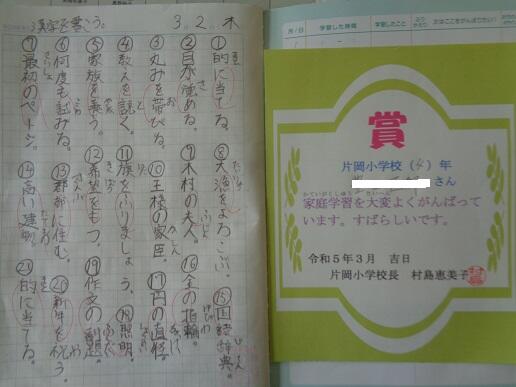 漢字を書こう。
3.2.木
①的に当てる。
②目が覚める。
③丸みを帯びる。
④教えを説く。
⑤家族を養う。
⑥何度も試みる。
⑦最初のページ。
⑧大漁をよろこぶ。
⑨木村の夫人。
⑩王様の家臣。
⑪旗をふりましょう。
⑫希望をもつ。
⑬都部に住む。
⑭高い建物。
⑮国語辞典。
⑯金の指輪。
⑰円の直径。
⑱照明。
⑲作文の題。
⑳新年を祝う。
㉑的に当てる。
月/日
学習した時間
学習したこと
賞
片岡小学校（4）年
さん
家庭学習を大変よくがんばって
います。すばらしいです。
令和5年3月 吉日
片岡小学校長 村島恵美子